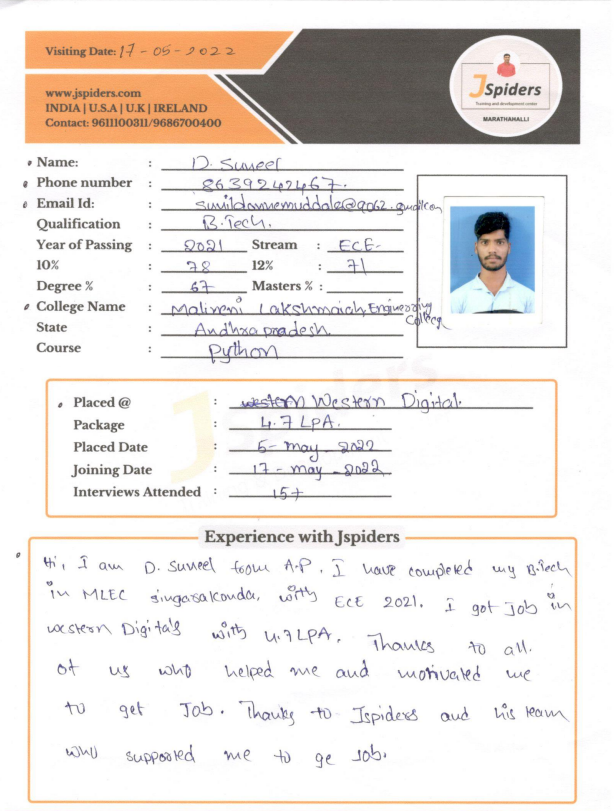 Visiting Date: 17-05-2022
www.jspiders.com
INDIA | U.S.A | U.K | IRELAND
Contact: 9611100311/9686700400
JSpiders
Training and development center
MARATHAHALLI
Name: D. Suneel
Phone number : 8639242467.
Email Id:
Qualification : B.Tech.
Year of Passing : 2021 Stream : ECE.
10% : 78 12% : 71
Degree % : 67 Masters % :
College Name : Malineni Lakshmaiah Engineering College
State : Andhra pradesh
Course : Python
Placed @ : western Western Digital.
Package : 4.7 LPA.
Placed Date : 5 - may - 2022
Joining Date : 17 - may - 2022
Interviews Attended : 15+
Experience with Jspiders
Hi, I am D. Suneel from A.P. I have completed my B.Tech
in MLEC singarakonda, with ECE 2021. I got Job in
western Digitals with 4.7 LPA. Thanks to all.
of us who helped me and motivated me
to get Job. Thanks to Jspiders and his team
who supported me to ge Job.